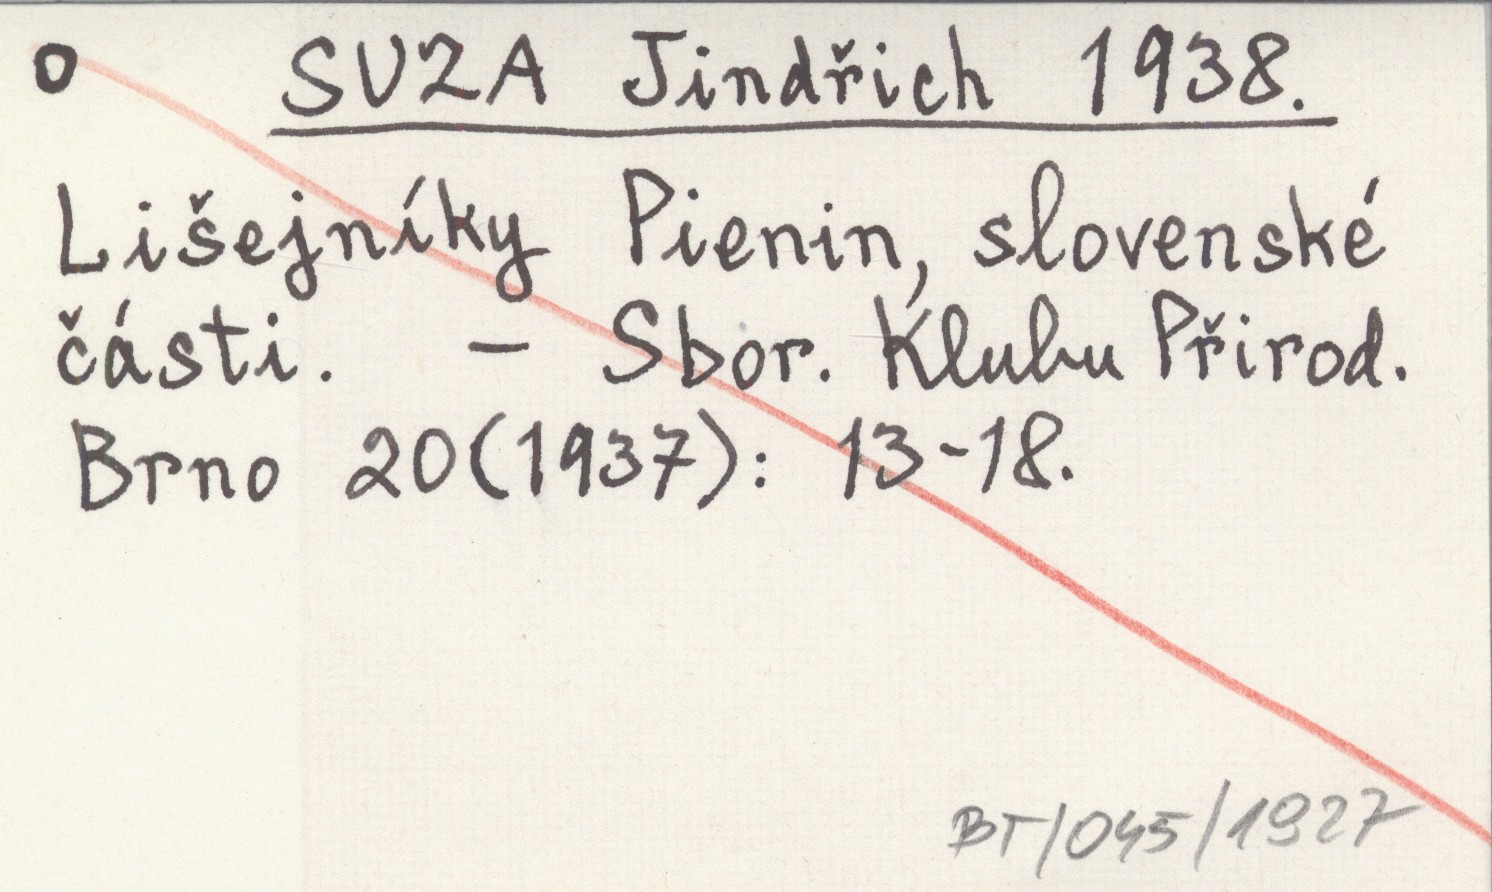 o SUZA Jindřich 1938.
Lišejníky Pienin, slovenské
části. – Sbor. Klubu Přirod.
Brno 20(1937): 13-18.
BT/045/1927